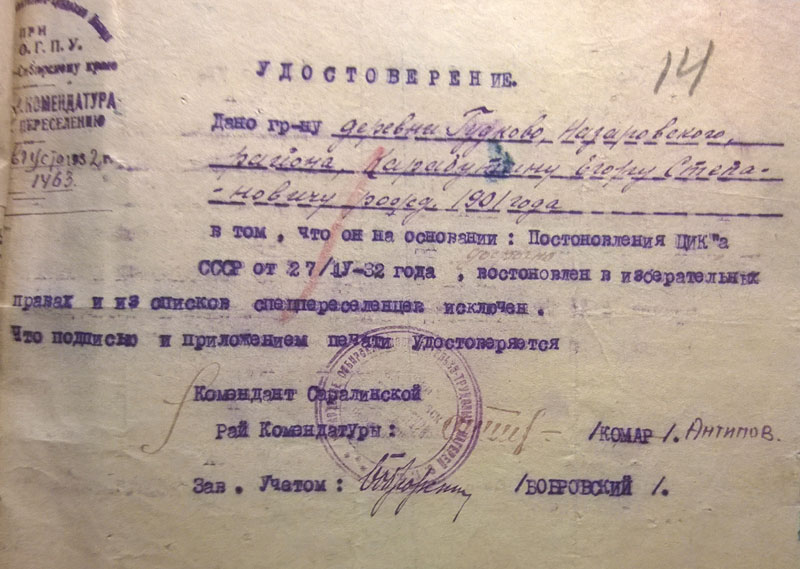 ПРИ
О.Г.П.У.
-Сибирскому краю
КОМЕНДАТУРА
ПЕРЕСЕЛЕНИЮ
1932 г.
1463.
14
УДОСТОВЕРЕНИЕ.
Дано гр-ну деревни Гудково, Назаровского,
района, Карабутину Егору Степа-
новичу рожд. 1901 года
в том, что он на основании: Постоновления ЦИК"а
СССР от 27/1У-32 года, востоновлен в изберательных
правах и из списков спецпереселенцев исключен.
Что подписью и приложением печати удостоверяется
Комендант Саралинской
Рай Комендатуры: /КОМАР/. Антипов.
Зав. Учетом: /БОБРОВСКИЙ/.